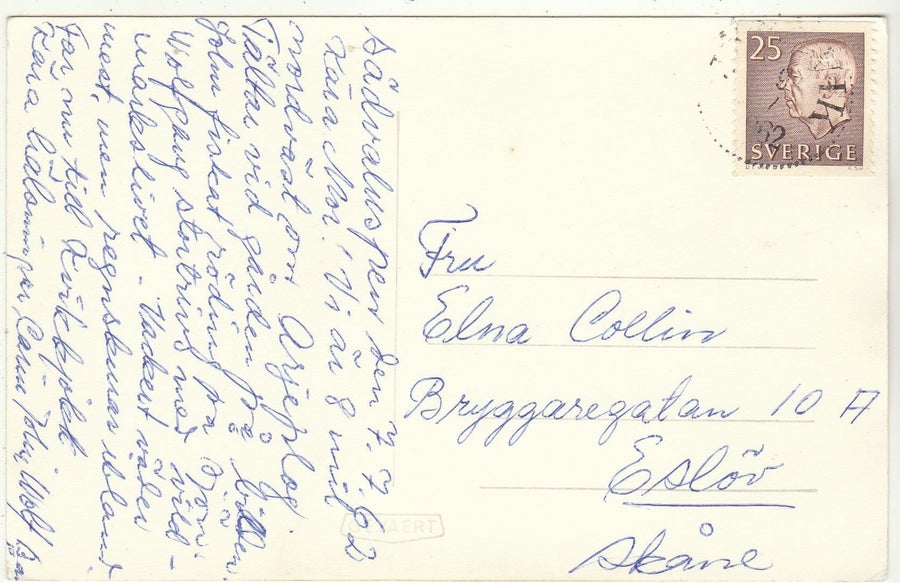 Sädvaluspen den 7.7.62
Kära Mor! Vi är 8 mil
nordväst om Arjeplog.
Tältar vid gården på bilden.
John fiskat röding på
Wolfgang strövtåg med vild-
markslivet - Vackert väder
mest, men regnskurar ibland.
Far nu till Kvikkjokk
Kära hälsningar, Carin, John, Wolf
25
SVERIGE
62
Fru
Elna Collin
Bryggaregatan 10 A
Eslöv
Skåne
GEVAERT